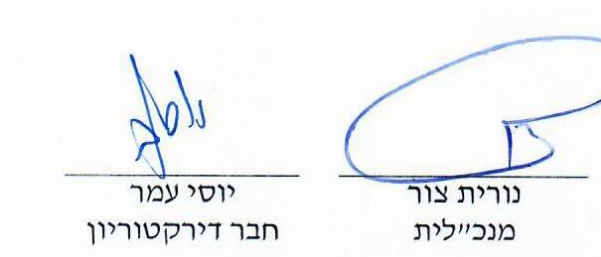 נורית צור
מנכ״לית
יוסי עמר
חבר דירקטוריון